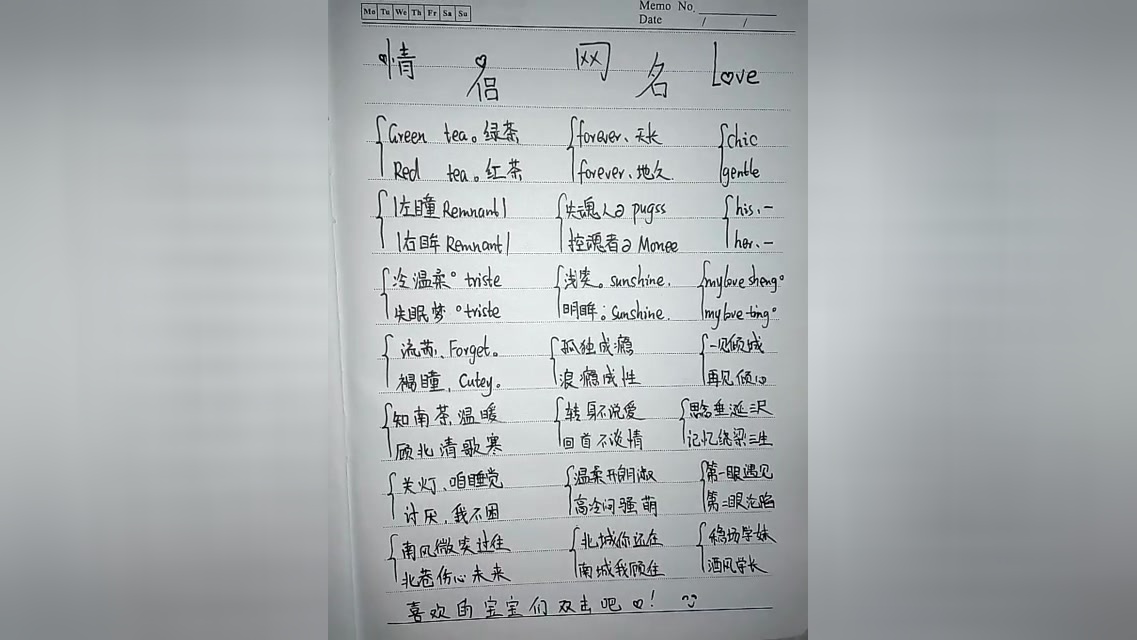 Mo Tu We Th Fr Sa Su
Memo No.
Date / /
情侣网名 Love
Green tea。绿茶
Red tea。红茶
forever、天长
forever、地久.
chic
gentle
|左瞳 Remnant|
|右眸 Remnant|
失魂人∂ pugss
控魂者∂ Monee
his、一
her、一
冷温柔° triste
失眠梦°triste
浅笑。sunshine.
明眸。sunshine.
my love sheng°
my love ting°
流苏、Forget。
褐瞳、Cutey。
孤独成瘾
浪瘾成性
一见倾城
再见倾心
知南茶温暖
顾北清歌寒
转身不说爱
回首不谈情
思念垂涎三尺
记忆绕梁三生
关灯、咱睡觉
讨厌、我不困
温柔开朗淑
高冷闷骚萌
第一眼遇见
第二眼沦陷
南风微笑过往
北巷伤心未来
北城你远在
南城我顾住
稳场学妹
洒风学长
喜欢的宝宝们双击吧♡!